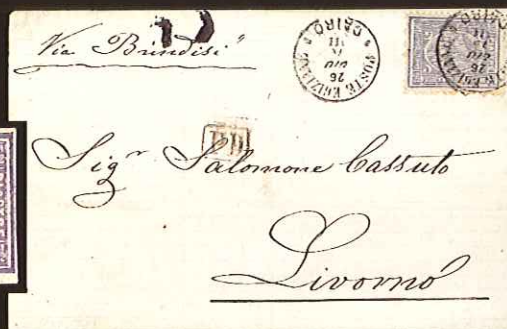 Via "Brindisi"
POSTE EGIZIANE
CAIRO
26
GIU
CAIRO
26
GIU
PD
Sigr Salomone Cassuto
Livorno